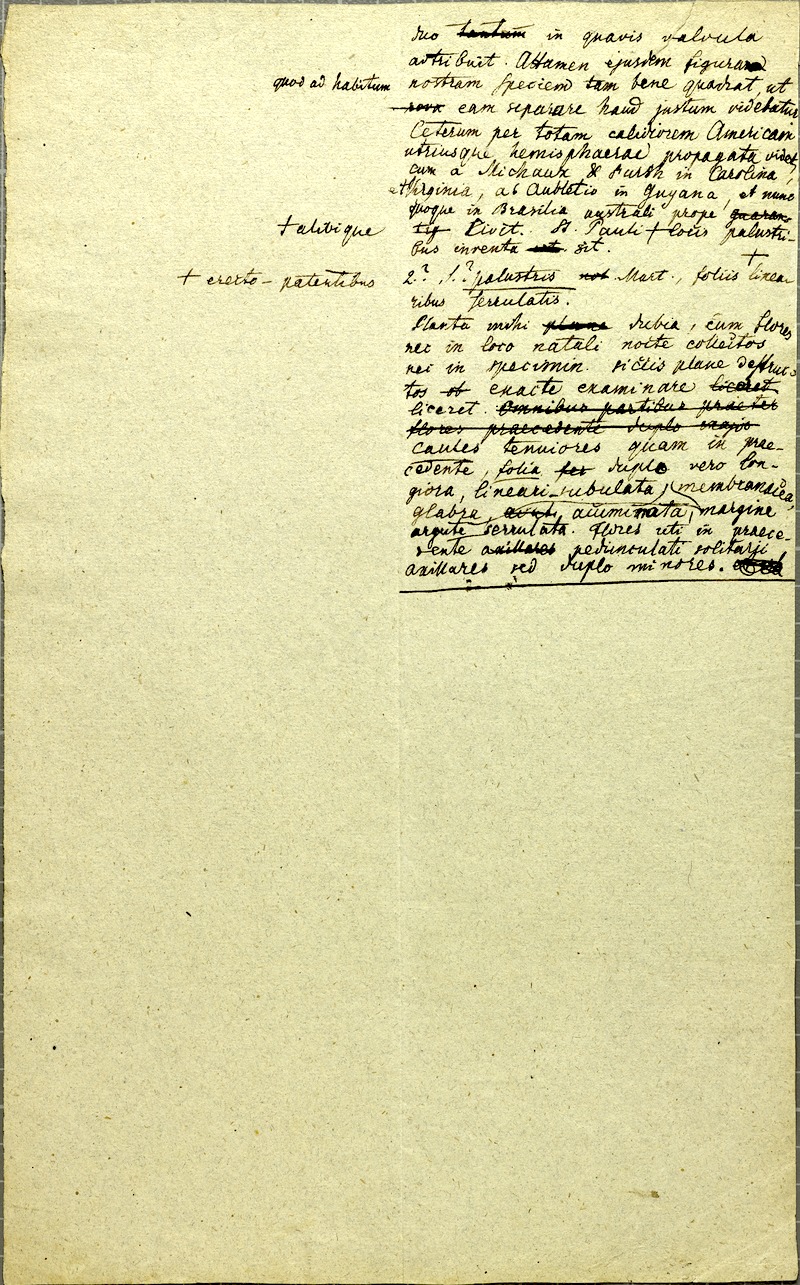 duo tantum in quavis valvula
adtribuit. Attamen ejusdem figuram
quod ad habitum nostram speciem tam bene quadrat, ut
nova eam separare haud justum videbatur
Ceterum per totam calidiorem Americam
utriusque hemisphaerae propagata videt
cum a Michaux & Pursh in Carolina,
et Virginia, ab Aubletio in Guyana, et nunc
quoque in Brasilia australi prope
+ alibique
Civit. St. Pauli + locis palustri-
bus inventa sit.
+ erecto-patentibus
2.? S.? palustris Mart., foliis + linea-
ribus serrulatis.
Planta mihi plane dubia, cum flores
nec in loco natali noite collectos
nec in specimin. siccis plane destruc-
tos ob exacte examinare liceret
liceret. Omnibus partibus praeter
flores praecedenti duplo majo
caules tenuiores quam in prae-
cedente, folia fer duplo vero lon-
giora, lineari-subulata, (membranacea,
glabra, acuminata, margine
argute serrulata. Flores uti in praece-
dente axillares pedunculati solitarii
axillares sed duplo minores.